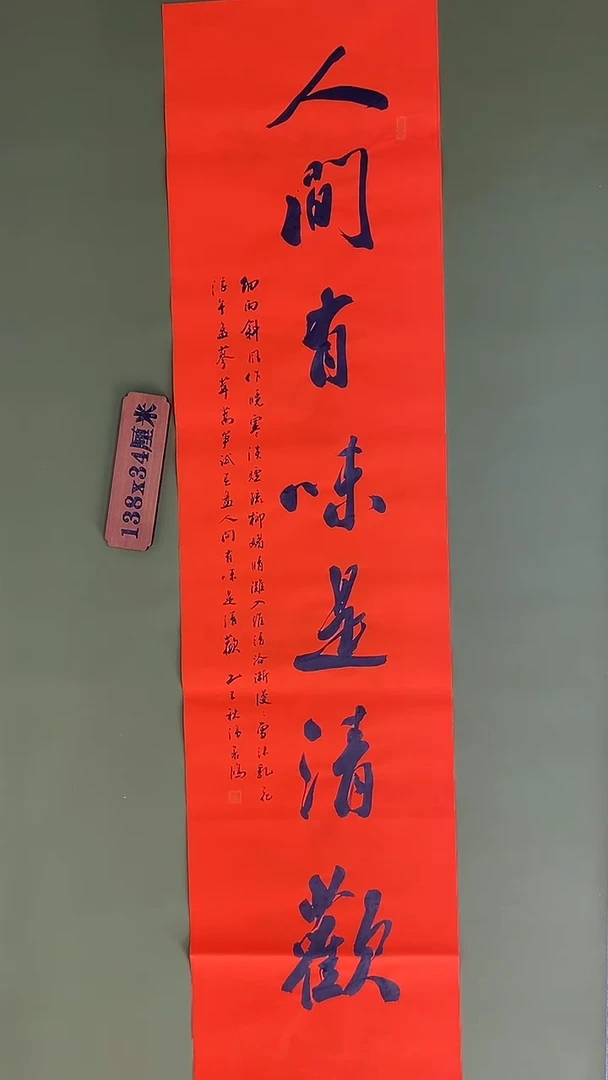 人間有味是清歡
細雨斜風作曉寒淡煙疏柳媚晴灘入淮清洛漸漫〻雪沫乳花
浮午盞蓼茸蒿筍試春盤人間有味是清歡 乙巳秋
138x34厘米